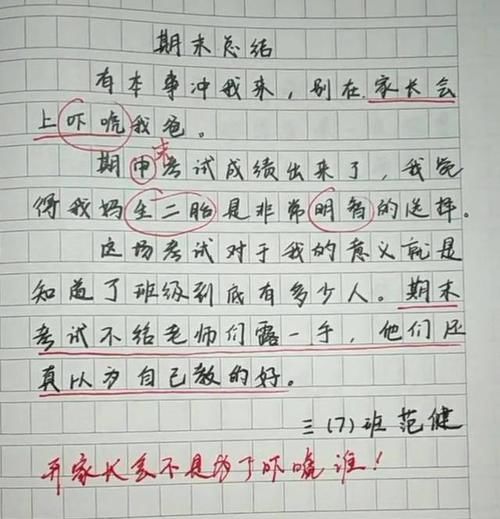 期末总结
有本事冲我来，别在家长会
上吓唬我爸。
末
期中考试成绩出来了，我觉
得我妈生二胎是非常明智的选择。
这场考试对于我的意义就是
知道了班级到底有多少人。期末
考试不给老师们露一手，他们还
真以为自己教的好。
三(7)班范健
开家长会不是为了吓唬谁！